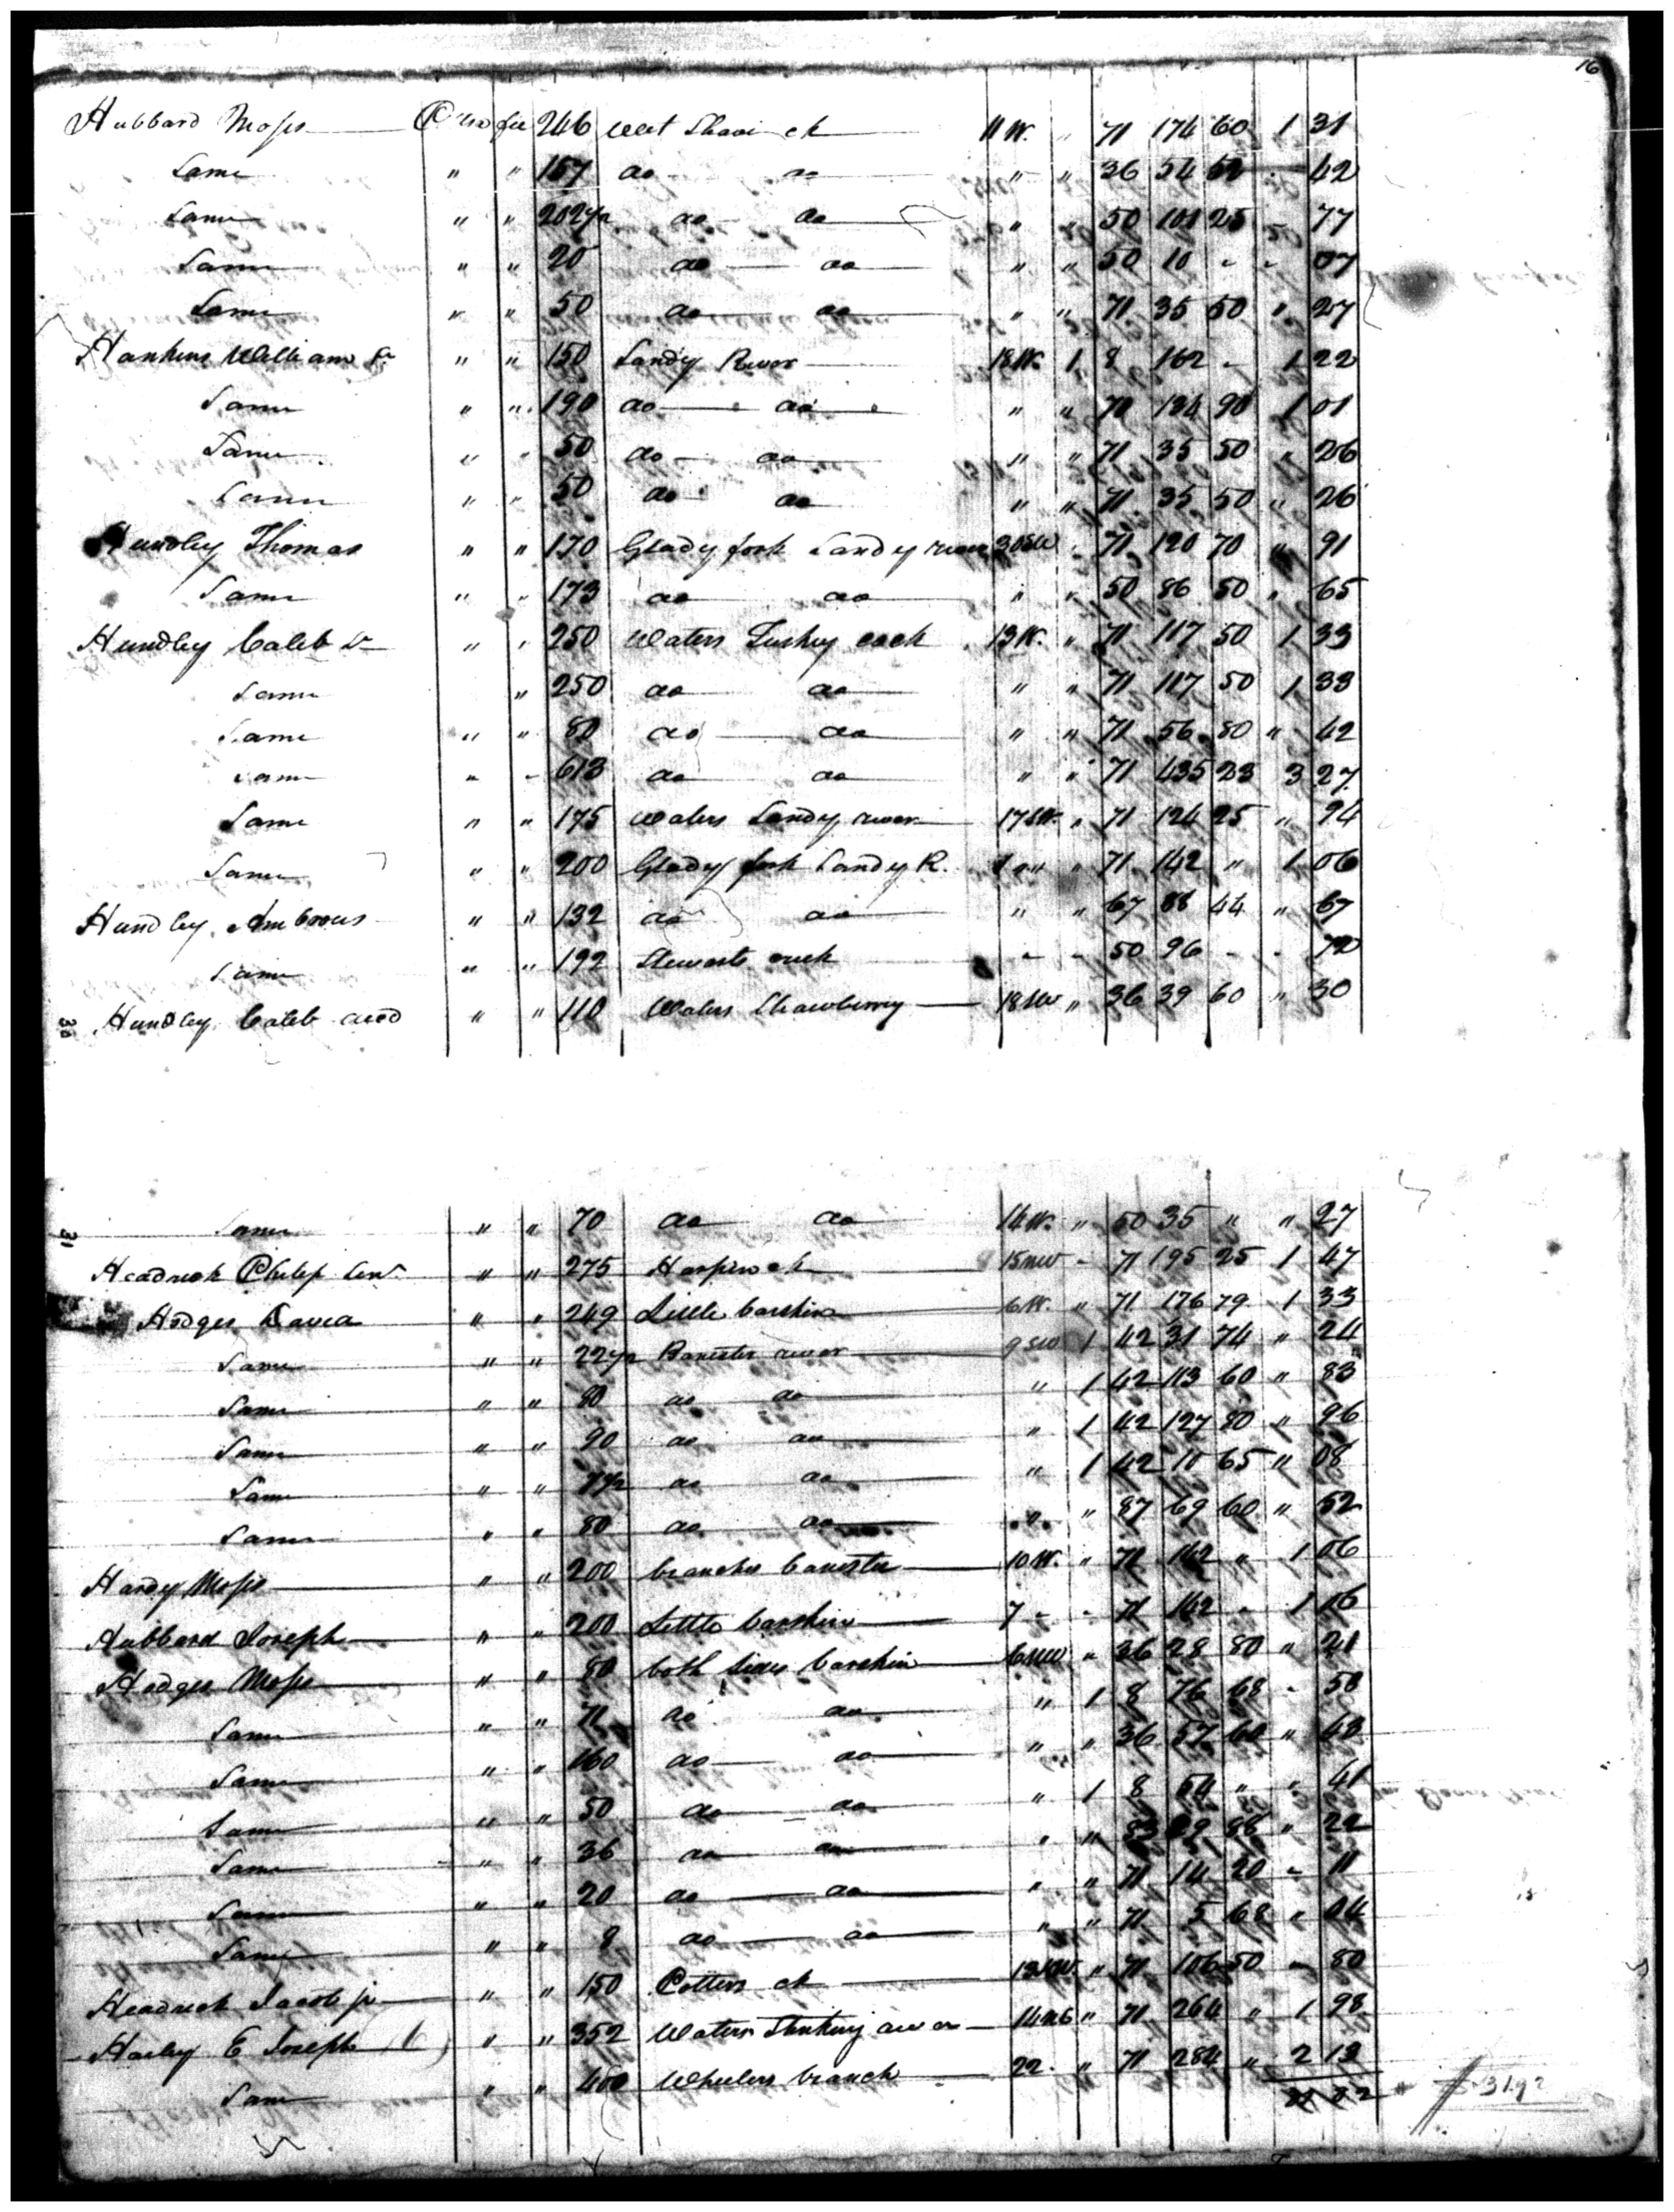 16
Hubbard Moses fee 246 ck 11 W. " 71 174 60 1 31
Same " " 157 do do " " 36 54 - 42
Same " " 202½ do do " " 50 101 25 - 77
Same " " 20 do do " " 50 10 - - 07
Same " " 50 do do " " 71 35 50 " 27
Hankins William Sr " " 150 Sandy River 18 W. 1 8 162 - 1 22
Same " " 190 do do " " 71 134 90 1 01
Same " " 50 do do " " 71 35 50 " 26
Same " " 50 do do " " 71 35 50 " 26
Hundley Thomas " " 170 Glady fork Sandy river 20 SW " 71 120 70 " 91
Same " " 173 do do " " 50 86 50 " 65
Hundley Caleb Sr " " 250 Waters Turkey cock 13 W. " 71 117 50 1 33
Same " 250 do do " " 71 117 50 1 33
Same " " 80 do do " " 71 56 80 " 42
Same " " 613 do do " " 71 435 23 3 27
Same " " 175 Waters Sandy river 17 SW. " 71 124 25 " 94
Same " " 200 Glady fork Sandy R. " " 71 142 " 1 06
Hundley Ambrous " " 132 do do " " 67 88 44 " 67
Same " " 192 Stewarts creek - - 50 96 - - 72
30 Hundley Caleb " " 110 Waters Strawberry 18 SW " 36 39 60 " 30
31 Same " " 70 do do 14 W. " 50 35 " " 27
Headrick Philip Senr " " 275 Harpin ck 15 NW - 71 195 25 1 47
Hodges David " " 249 Little bearskin 6 W. " 71 176 79 1 33
Same " " 22½ Banister river 9 SW 1 42 31 74 " 24
Same " " 80 do do " 1 42 113 60 " 83
Same " " 90 do do " 1 42 127 80 " 96
Same " " 7½ do do " 1 42 10 65 " 08
Same " " 80 do do " " 87 69 60 " 52
Hardy Moses " " 200 branches banister 10 W. " 71 142 " 1 06
Hubbard Joseph " " 200 Little bearskin 7 - - 71 142 - 1 06
Hodges Moses " " 80 both sides bearskin 6 NW " 36 28 80 " 21
Same " " 71 do do " 1 8 76 68 - 58
Same " " 160 do do " " 36 57 60 " 43
Same " " 50 do do " 1 8 54 " " 41
Same " " 36 do do " " 83 29 88 " 22
Same " " 20 do do " " 71 14 20 - 11
Same " " 8 do do " " 71 5 68 " 04
Headrick Jacob jr " " 150 Potters ck " 71 106 50 - 80
Harley E Joseph " " 352 Waters Stinking river 14 " 71 264 " 1 98
Same " " 400 Wheelers branch 22 - " 71 284 " 2 13